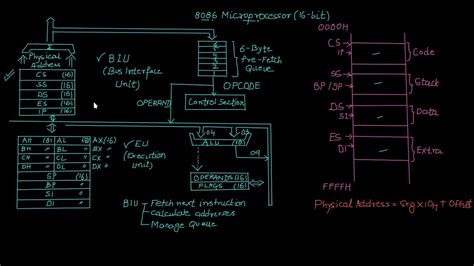 8086 Microprocessor (16-bit)
Σ
Physical
Address
CS (16)
SS (16)
DS (16)
ES (16)
IP (16)
✓ BIU
(Bus Interface
Unit)
6
5
4
3
2
1
6-Byte
Pre-Fetch
Queue
OPCODE
OPERAND
Control Section
AH (8) AL (8) AX(16)
BH " BL " BX "
CH " CL " CX "
DH " DL " DX "
SP (16)
BP "
SI "
DI "
✓ EU
(Execution
unit)
04 03
ALU (16)
09
OPERANDS(16)
FLAGS (16)
BIU - Fetch next instruction
- Calculate addresses
- Manage Queue
0000H
CS
IP
Code
SS
BP/SP
Stack
DS
SI
Data
ES
DI
Extra
FFFFH
Physical Address = Seg×10H + Offset